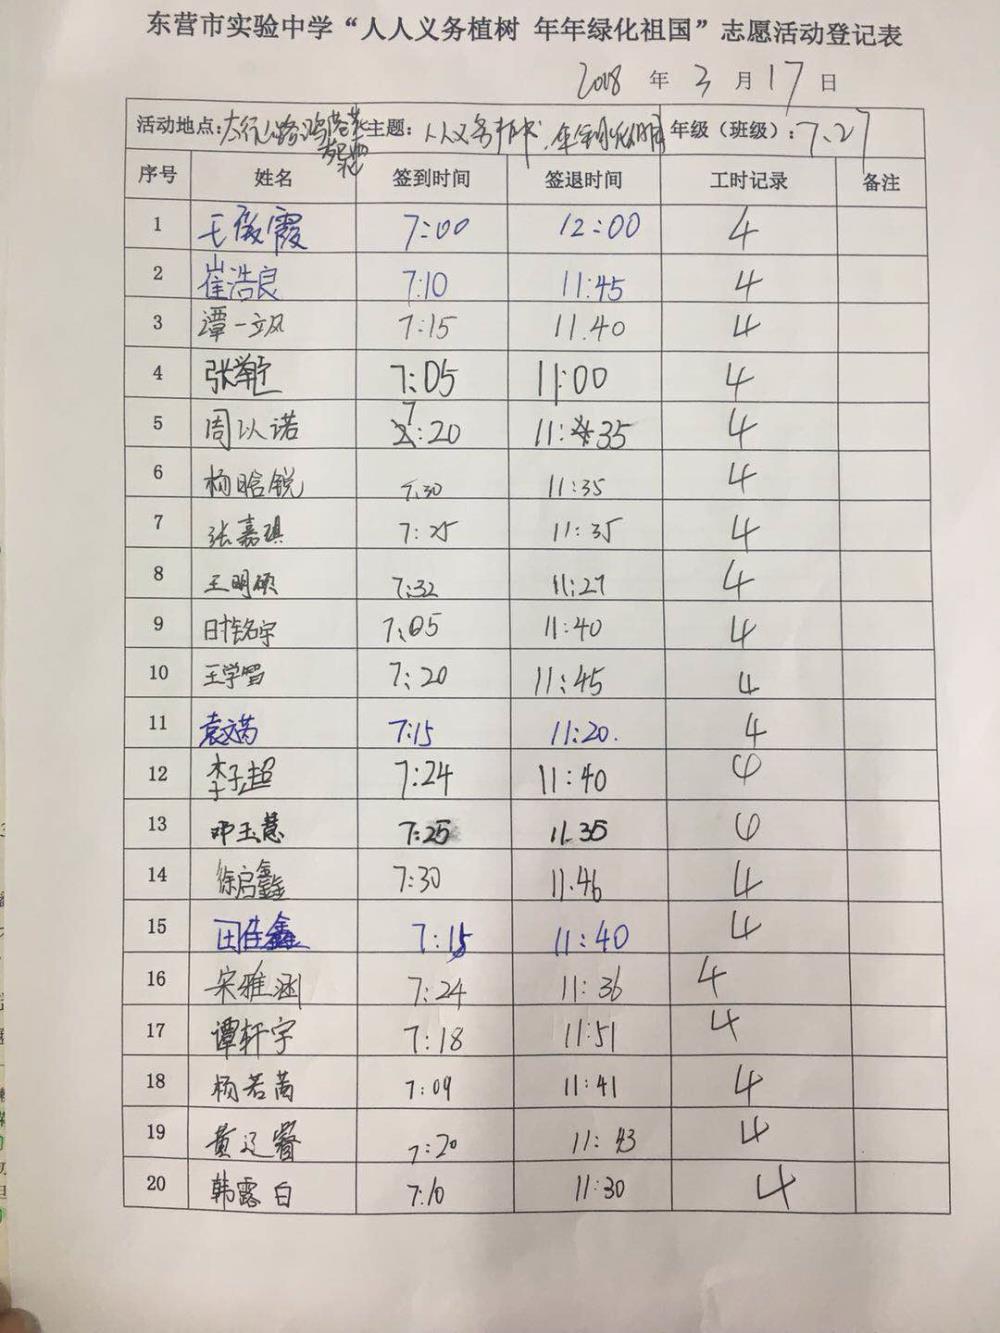 东营市实验中学“人人义务植树 年年绿化祖国”志愿活动登记表
2018 年 3 月 17 日
活动地点: 主题: 人人义务植树 年级（班级）: 7.27
序号 姓名 签到时间 签退时间 工时记录 备注
1 王薇霞 7:00 12:00 4
2 崔浩良 7:10 11:45 4
3 谭一立风 7:15 11.40 4
4 7:05 11:00 4
5 周以诺 7:20 11:35 4
6 杨晗锐 7:30 11:35 4
7 张嘉琪 7:25 11:35 4
8 王明硕 7:32 11:27 4
9 7:05 11:40 4
10 7:20 11:45 4
11 7:15 11:20. 4
12 李子超 7:24 11:40 4
13 邓玉慧 7:25 11.35 4
14 徐启鑫 7:30 11.46 4
15 田佳鑫 7:15 11:40 4
16 宋雅涵 7:24 11:36 4
17 谭轩宇 7:18 11:51 4
18 杨若茜 7:09 11:41 4
19 黄辽睿 7:20 11:43 4
20 韩露白 7:10 11:30 4